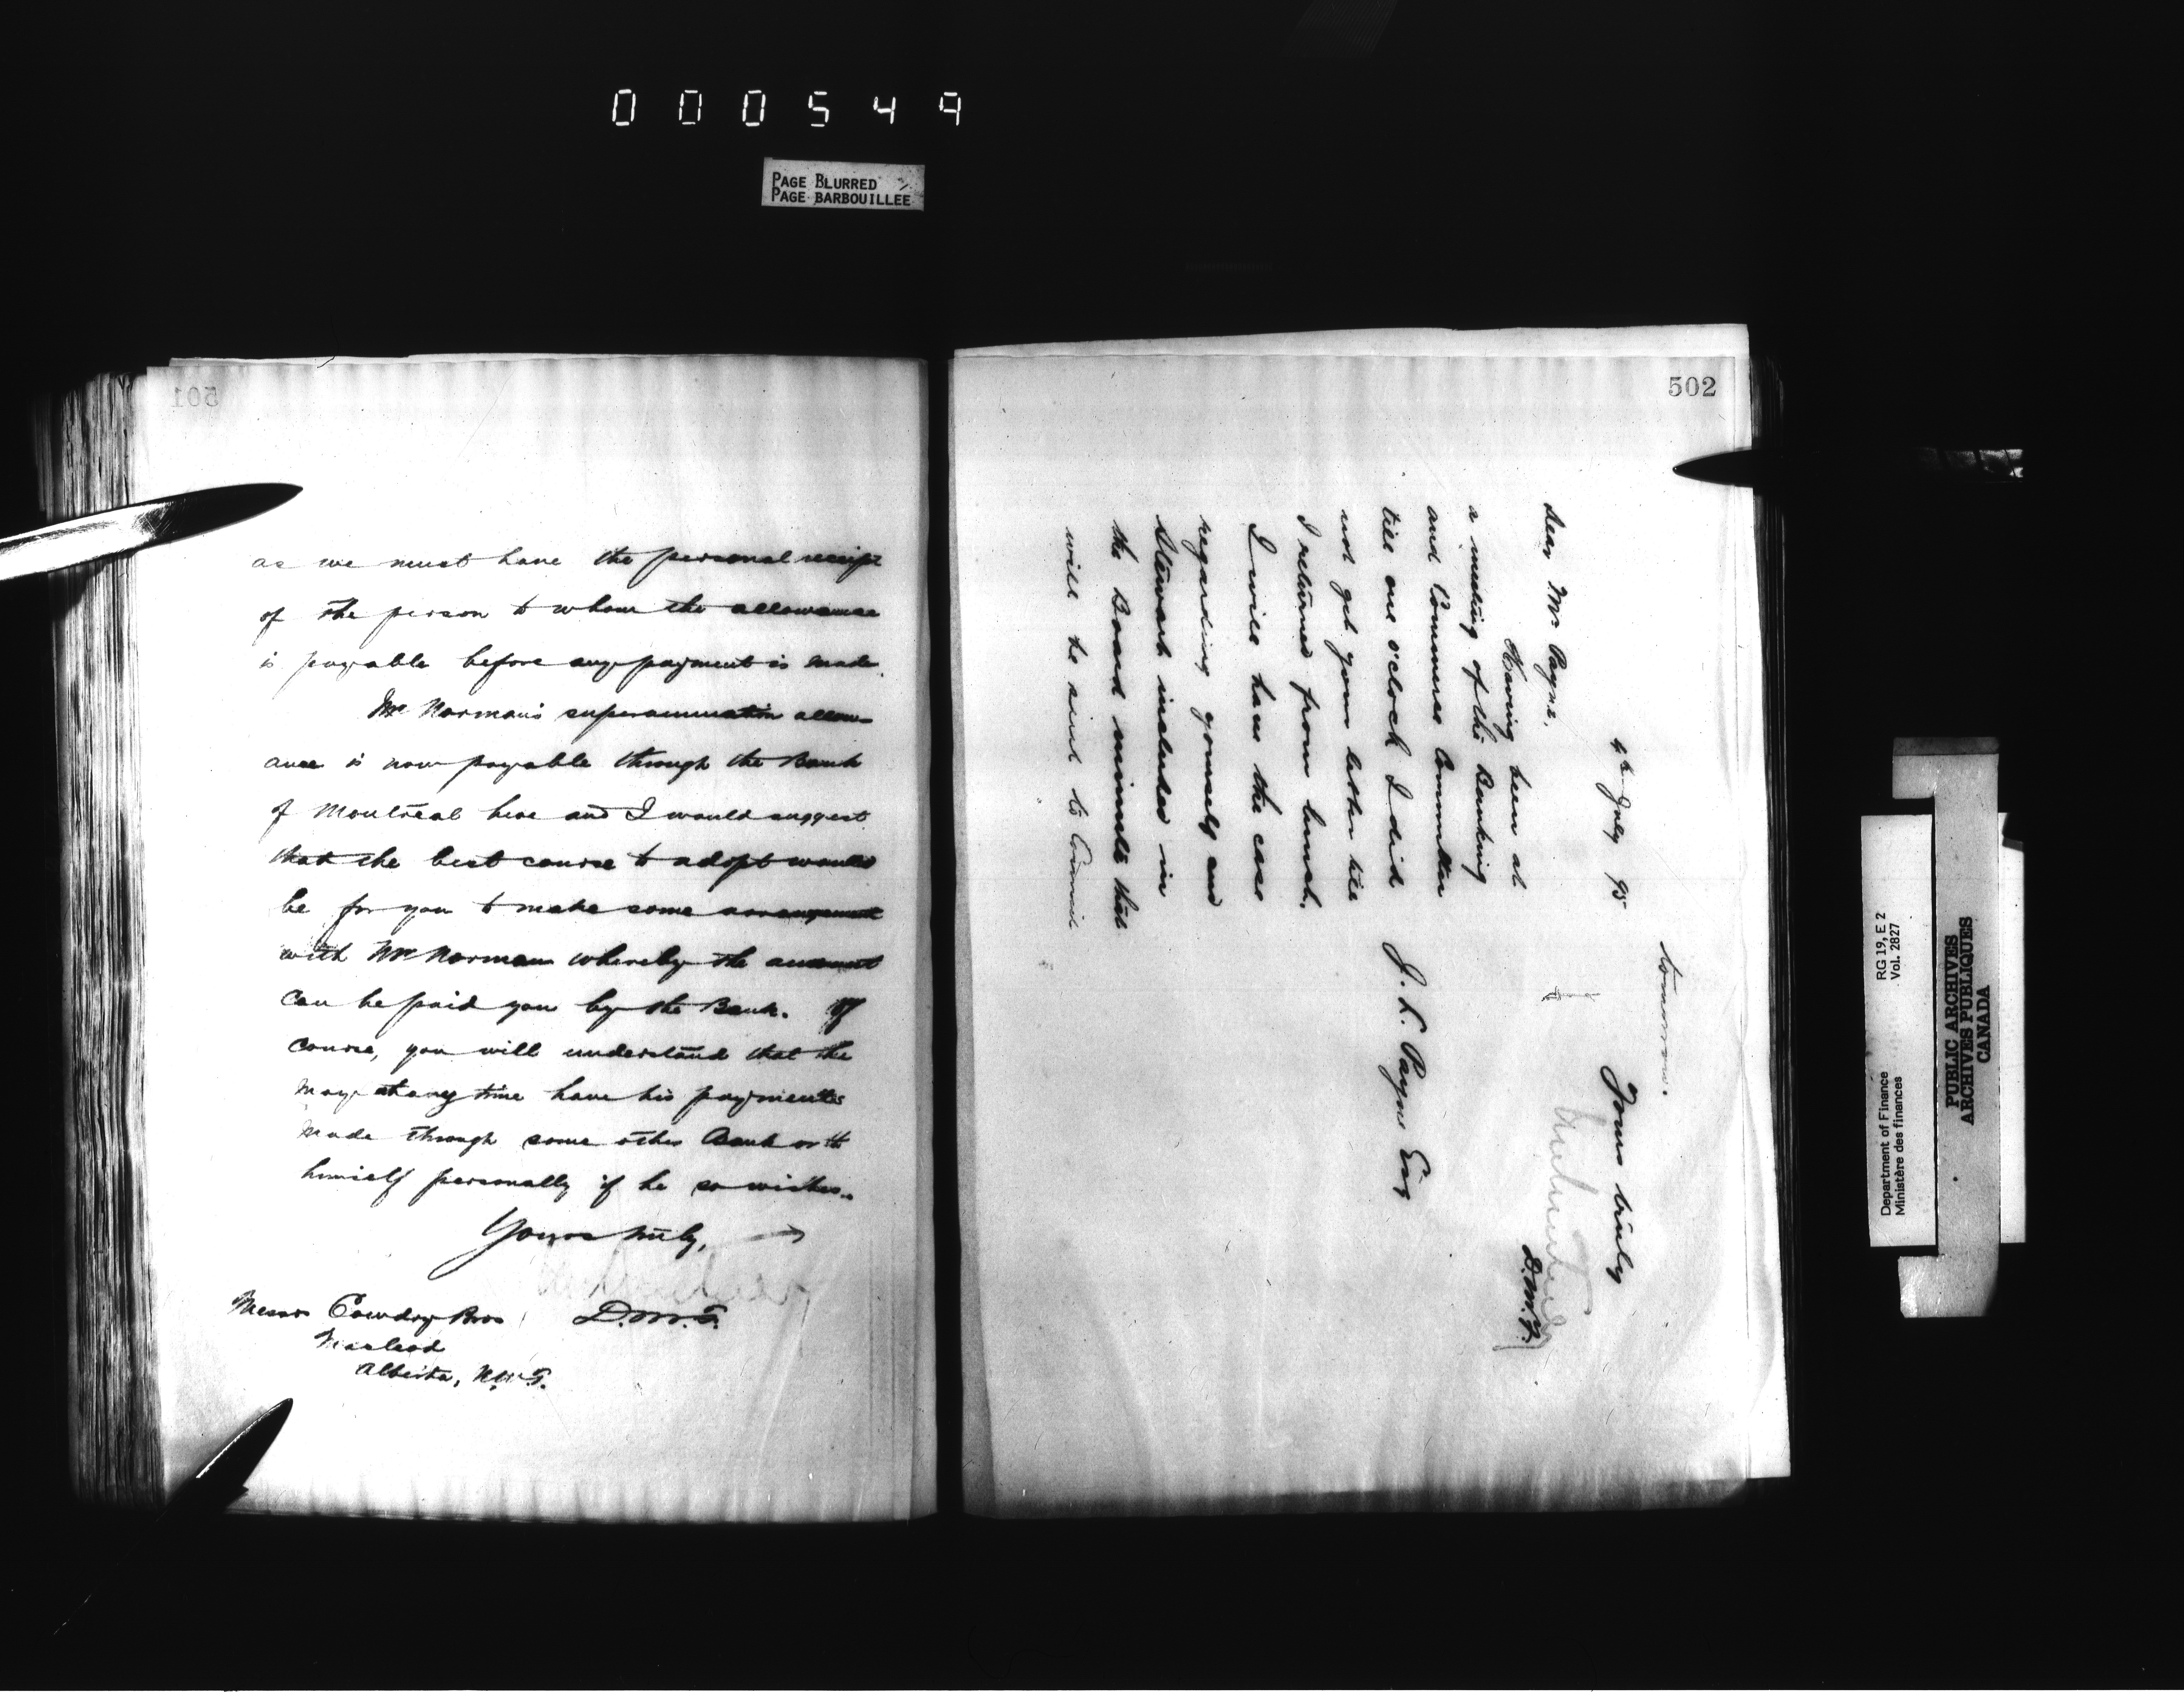 000549
PAGE BLURRED
PAGE BARBOUILLEE
501
as we must have the personal receipt
of the person to whom the allowance
is payable before any payment is made.
Mr Norman's superannuation allow-
ance is now payable through the Bank
of Montreal here and I would suggest
that the best course to adopt would
be for you to make some arrangement
with Mr Norman whereby the amount
can be paid you by the Bank. Of
course, you will understand that he
may at any time have his payments
made through some other Bank or to
himself personally if he so wishes.
Yours truly,
D.M.F.
Messrs Cowdry Bros
Macleod
Alberta, N.W.T.
502
4th July 95
Dear Mr. Payne,
Having been at
a meeting of the Banking
and Commerce Committee
till one o'clock I did
not get your letter till
I returned from lunch.
I will have the case
regarding yourself and
Stewart included in
the Board minute that
will be sent to Council
tomorrow.
Yours truly
D.M.F.
J. L. Payne Esq
Department of Finance
Ministère des finances
RG 19, E 2
Vol. 2827
PUBLIC ARCHIVES
ARCHIVES PUBLIQUES
CANADA